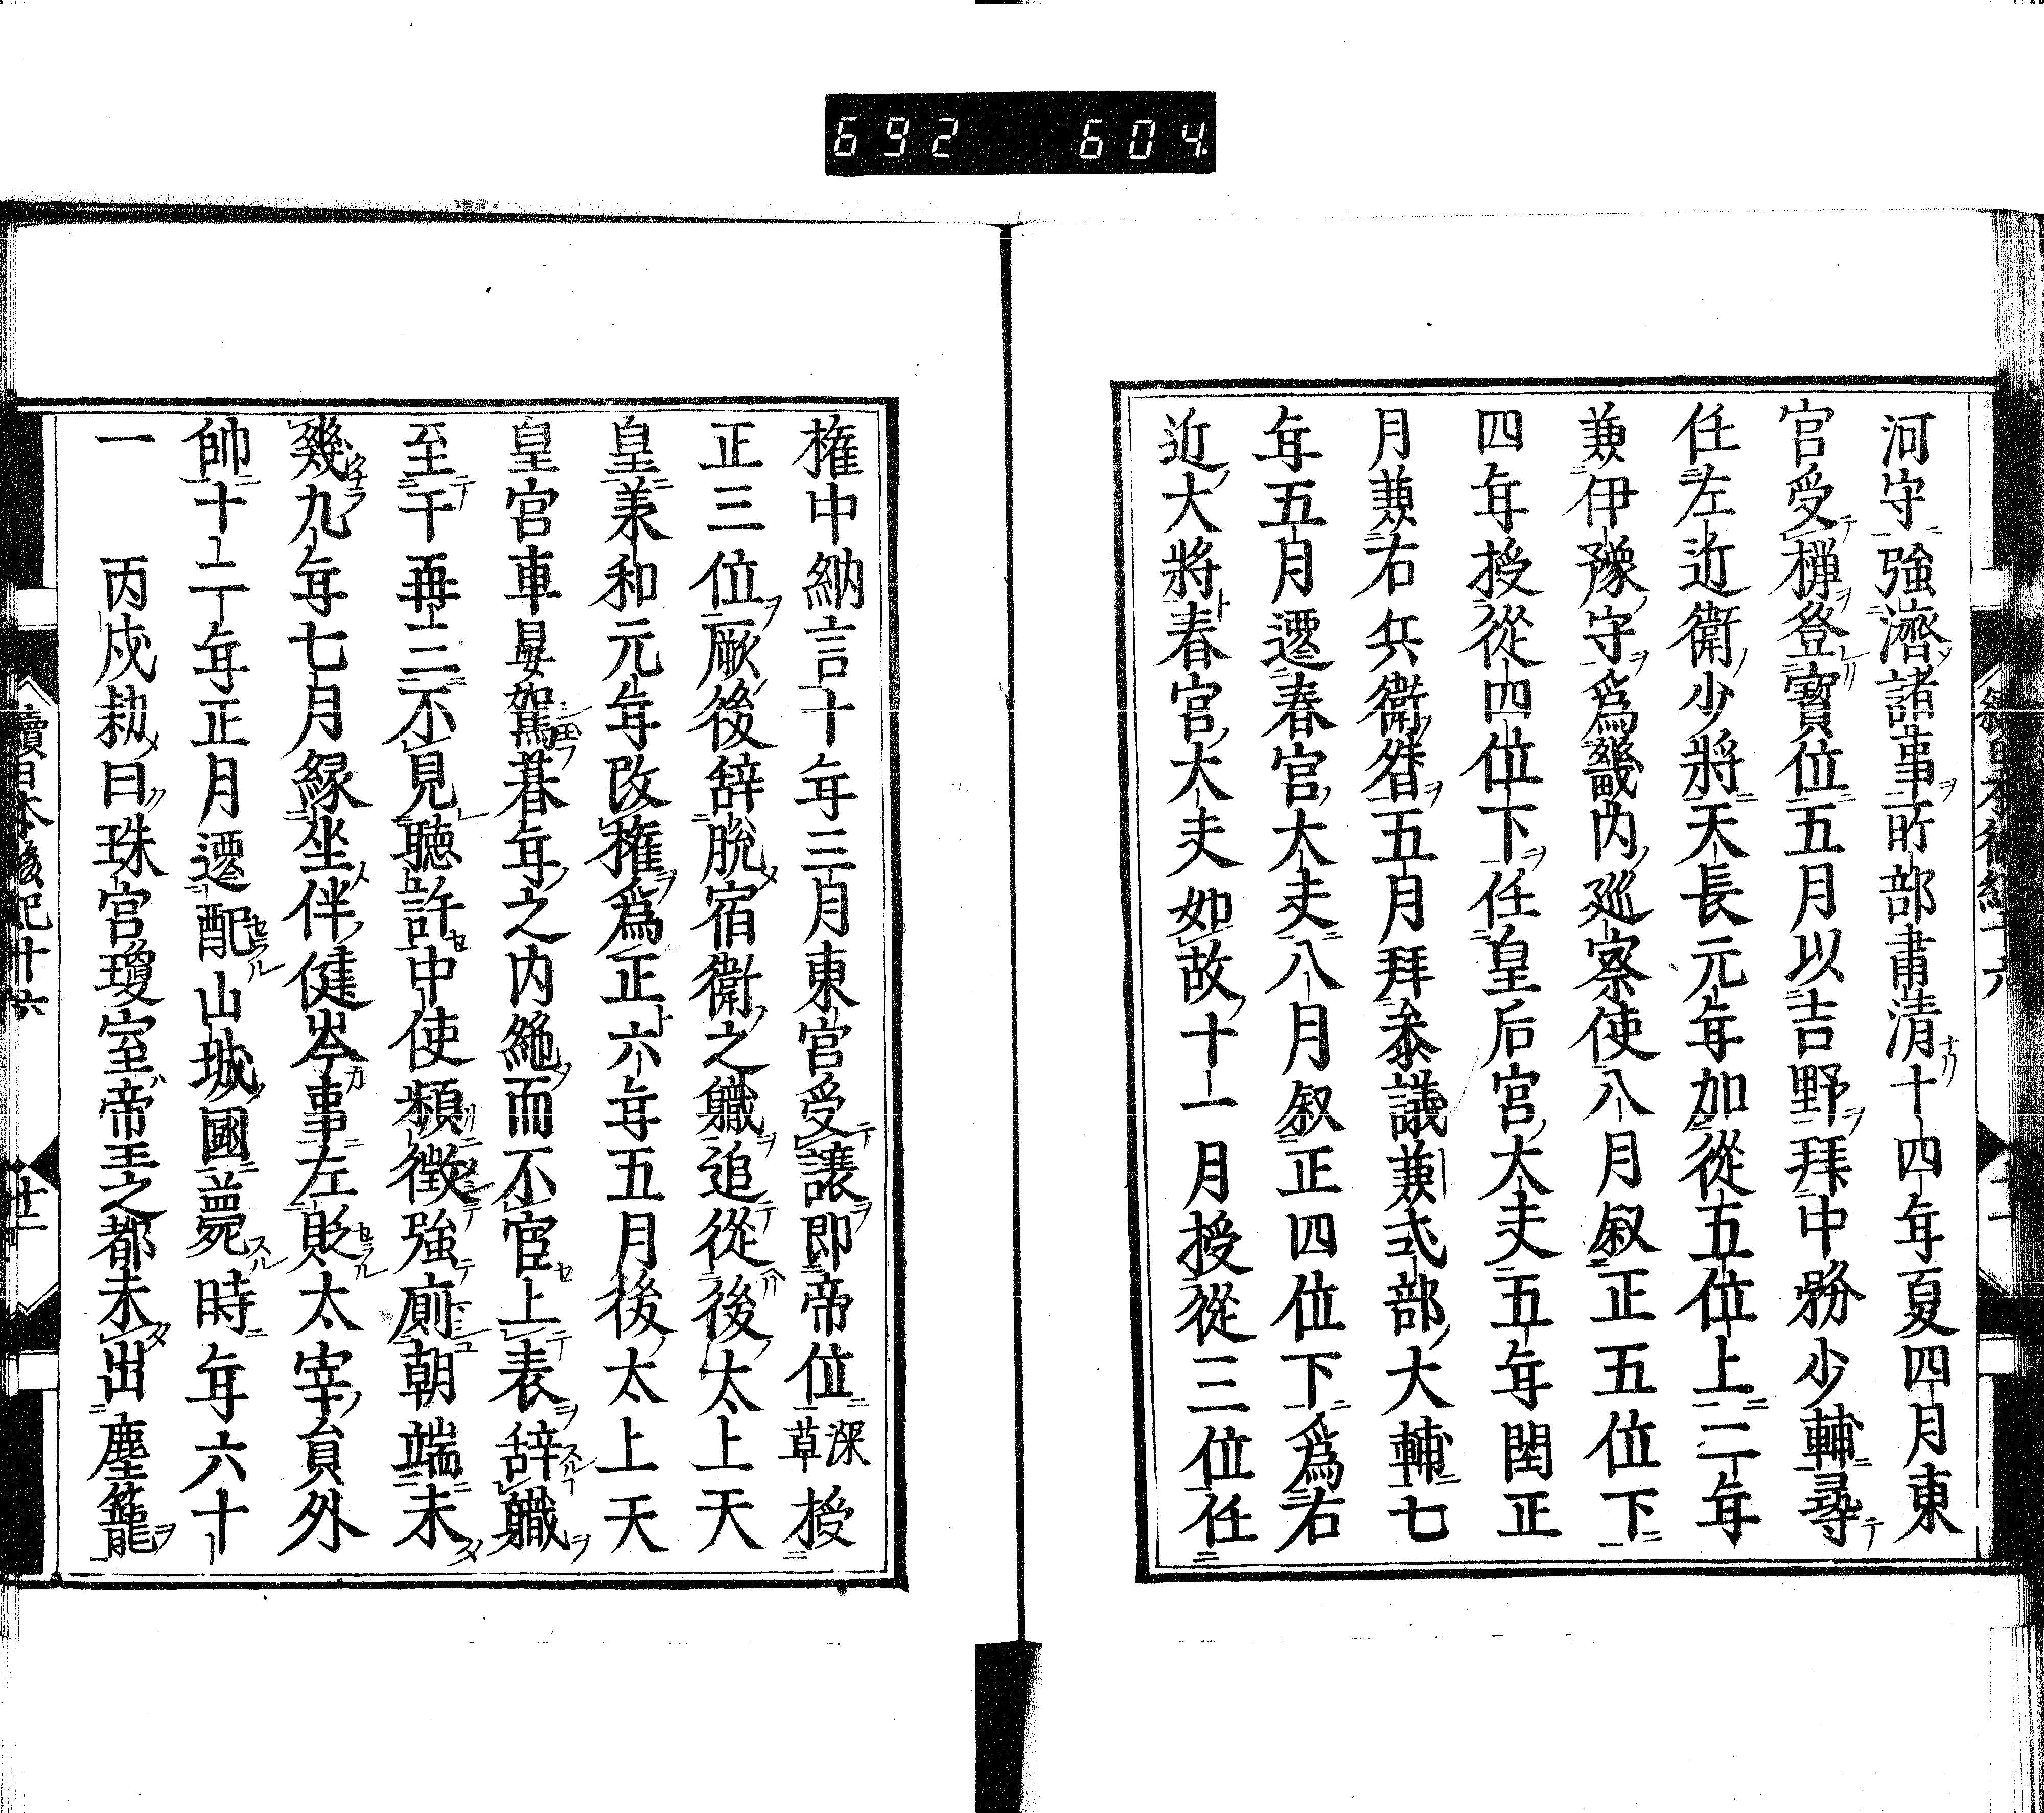 692 604.
河守強濟諸事所部肅清十四年夏四月東
官受禅登寶位五月以吉野拜中務少輔尋
任左近衛少將天長元年加從五位上二年
兼伊豫守爲畿内巡察使八月叙正五位下
四年授從四位下任皇后宮大夫五年閏正
月兼右兵衛督五月拜參議兼式部大輔七
年五月遷春宮大夫八月叙正四位下爲右
近大將春宮大夫如故十一月授從三位任
権中納言十年三月東宮受讓即帝位深草授
正三位厥後辞脱宿衛之職追從後太上天
皇兼和元年改権爲正六年五月後太上天
皇宮車晏駕暮年之内絶而不宦上表辞職
至于再三不見聴許中使頻徴強廁朝端未
幾九年七月緣坐伴健岑事左貶太宰員外
帥十二年正月遷配山城國薨時年六十
一 丙戌勅曰珠宮瓊室帝王之都未出塵籠
續日本後紀十六 廿一